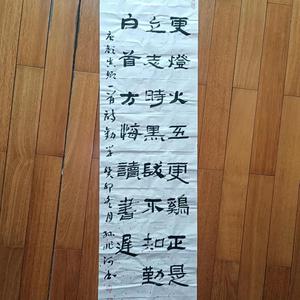 更燈火五更鷄正是
立志時黑髮不知勤
白首方悔讀書遲
唐顔真卿一首詩勸學 癸卯 月